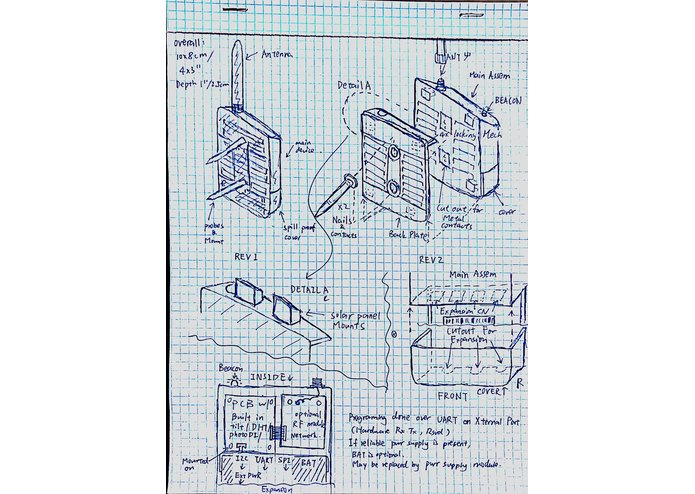 overall:
10x8cm/
4x3"
Depth 1"/2.5cm
Antenna
main
device
probes
&
Mount
spill proof
cover
REV1
ANT
Main Assem
BEACON
Detail A
locking
Mech
x2
Nails
&
contacts
Cut out for
Metal
contacts
cover
Back Plate
REV2
DETAIL A
solar panel
Mounts
Main Assem
Expansion CN
Cutout For
Expansion
FRONT
COVER
Beacon
INSIDE
PCB w/
Built in
tilt/DHT/
photoDI/
optional
RF module
network
Mounted
on
I2C UART SPI BAT
Ext PWR
Expansion
Programing done over UART on Xternal Port.
(Hardware Rx Tx, Rsvd)
If reliable pwr supply is present,
BAT is optional.
May be replaced by pwr supply module.